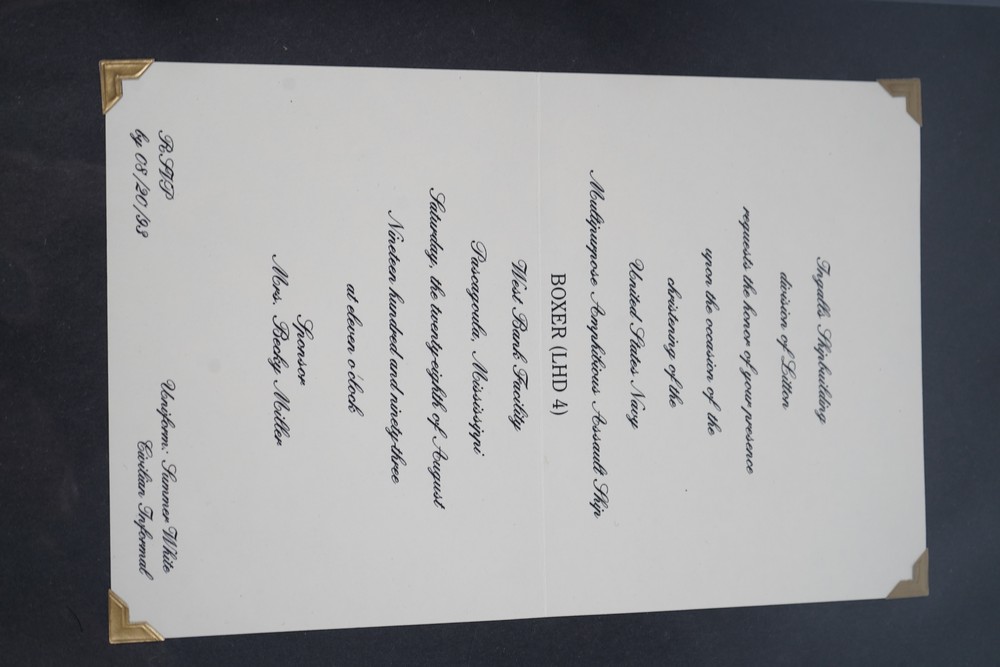 Ingalls Shipbuilding
division of Litton
requests the honor of your presence
upon the occasion of the
christening of the
United States Navy
Multipurpose Amphibious Assault Ship
BOXER (LHD 4)
West Bank Facility
Pascagoula, Mississippi
Saturday, the twenty-eighth of August
Nineteen hundred and ninety-three
at eleven o'clock
Sponsor
Mrs. Becky Miller
RSVP
by 08/20/93
Uniform: Summer White
Civilian Informal